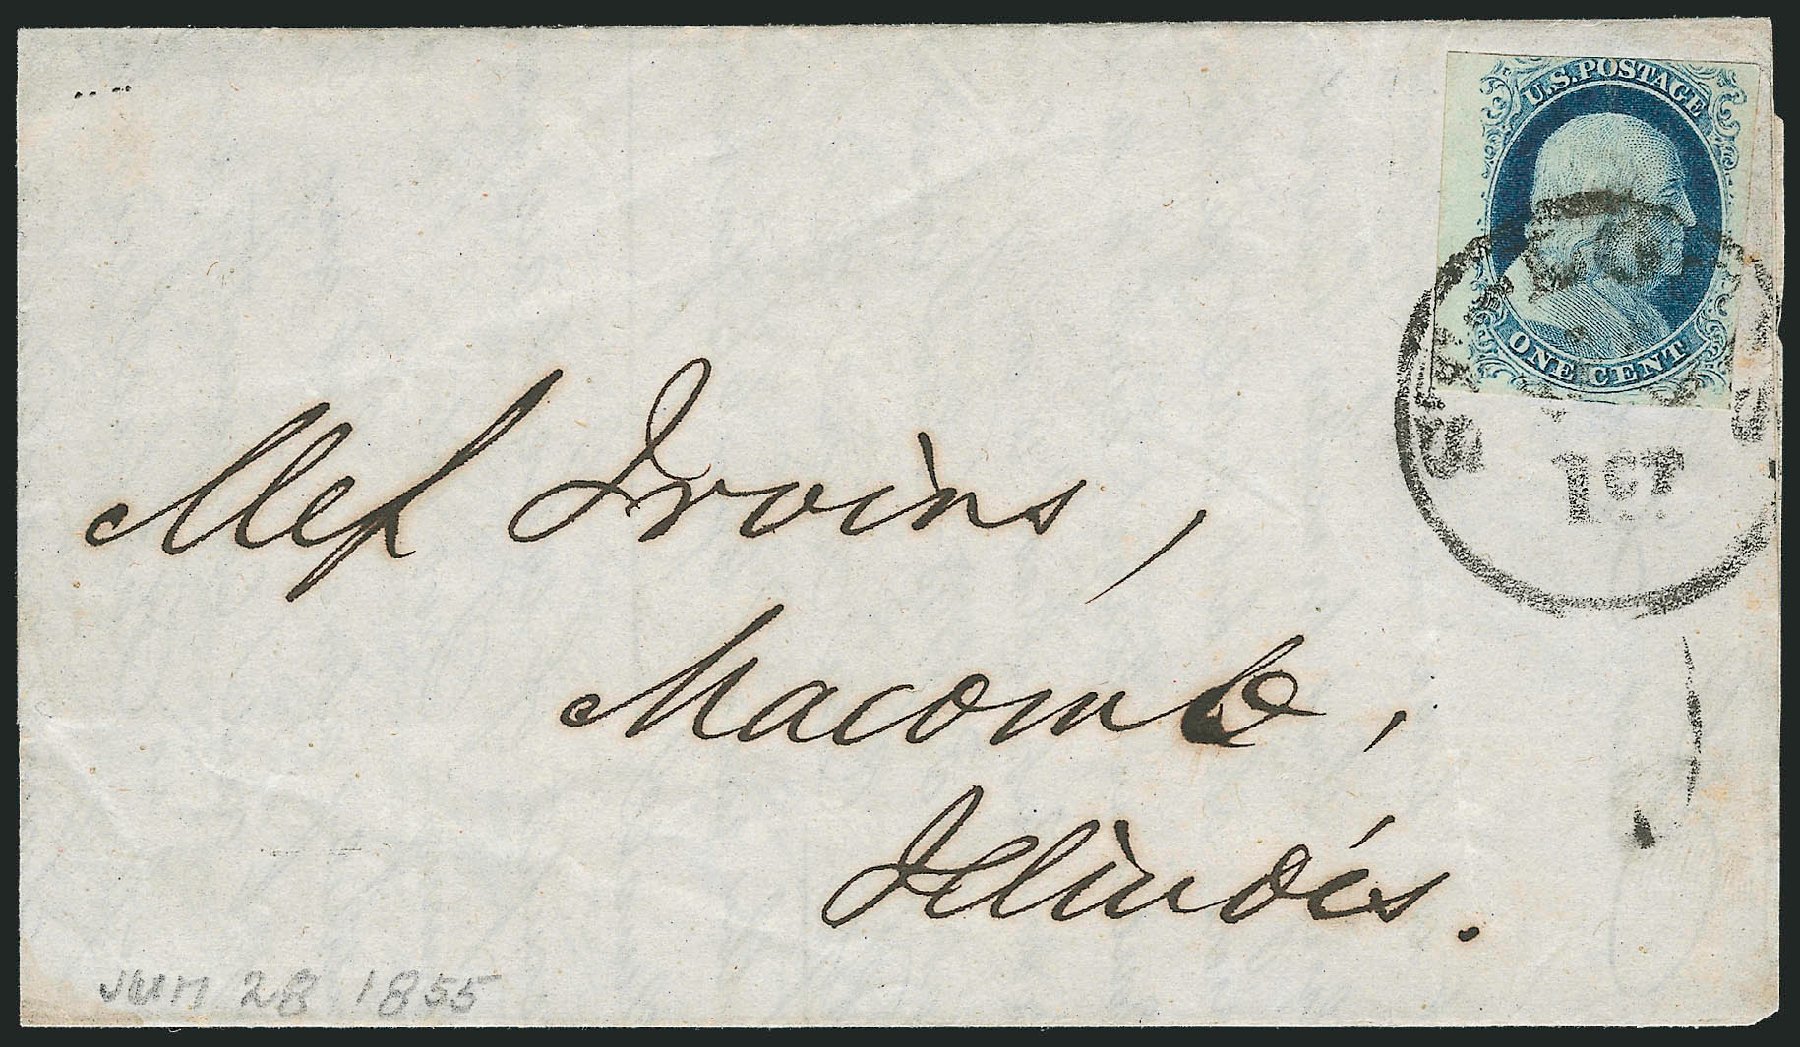 U.S. POSTAGE
ONE CENT
1 CT
Irvins,
Macomb,
Illinois.
JUN 28 1855